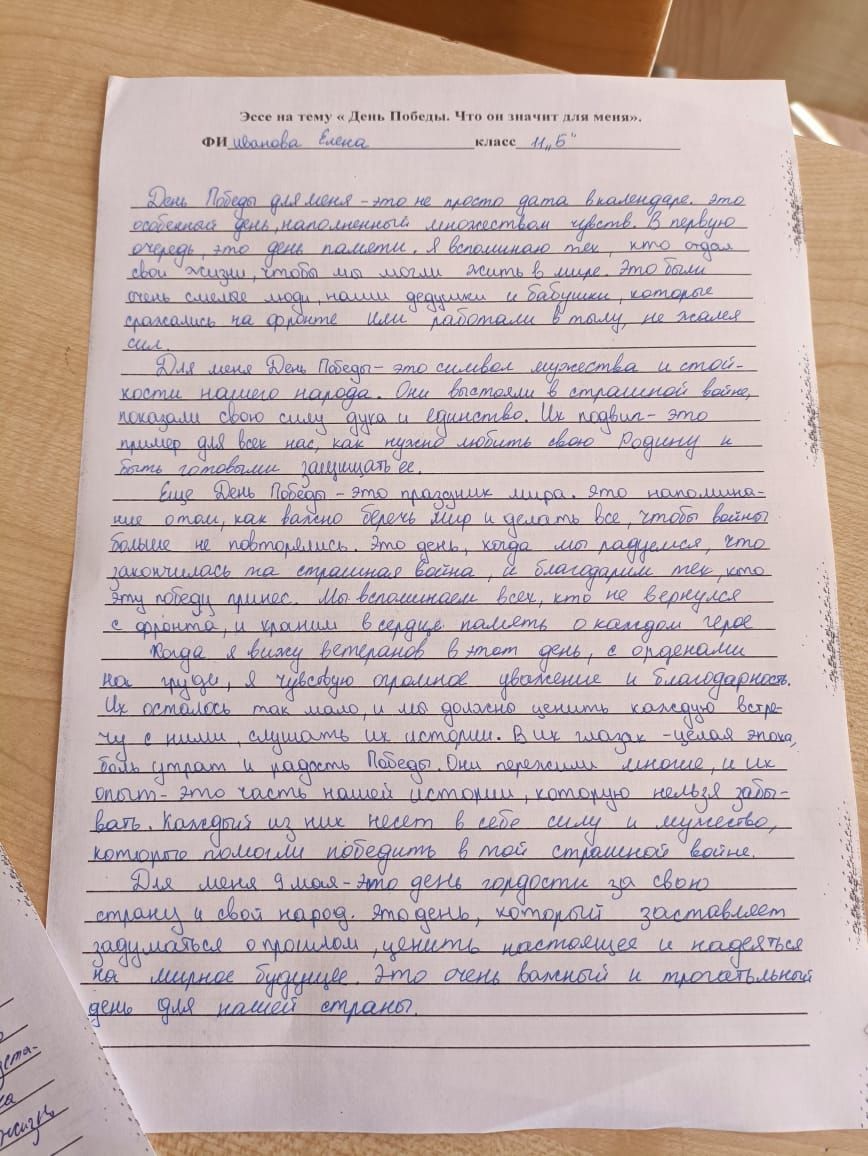 Эссе на тему « День Победы. Что он значит для меня».
ФИ Иванова Елена класс 11 „Б"
День Победы для меня – это не просто дата в календаре. Это
особенный день, наполненный множеством чувств. В первую
очередь, это день памяти. Я вспоминаю тех, кто отдал
свои жизни, чтобы мы могли жить в мире. Это были
очень смелые люди, наши дедушки и бабушки, которые
сражались на фронте или работали в тылу, не жалея
сил.
Для меня День Победы – это символ мужества и стой-
кости нашего народа. Они выстояли в страшной войне,
показали свою силу духа и единство. Их подвиг – это
пример для всех нас, как нужно любить свою Родину и
быть готовыми защищать ее.
Еще День Победы – это праздник мира. Это напомина-
ние о том, как важно беречь мир и делать все, чтобы войны
больше не повторялись. Это день, когда мы радуемся, что
закончилась та страшная война, и благодарим тех, кто
эту победу принес. Мы вспоминаем всех, кто не вернулся
с фронта, и храним в сердце память о каждом герое
Когда я вижу ветеранов в этот день, с орденами
на груди, я чувсвую огромное уважение и благодарность.
Их осталось так мало, и мы должны ценить каждую встре-
чу с ними, слушать их истории. В их глазах – целая эпоха,
боль утрат и радость Победы. Они пережили многое, и их
опыт – это часть нашей истории, которую нельзя забы-
вать. Каждый из них несет в себе силу и мужество,
которые помогли победить в той страшной войне.
Для меня 9 мая – это день гордости за свою
страну и свой народ. Это день, который заставляет
задуматься о прошлом, ценить настоящее и надеяться
на мирное будущее. Это очень важный и трогательный
день для нашей страны.